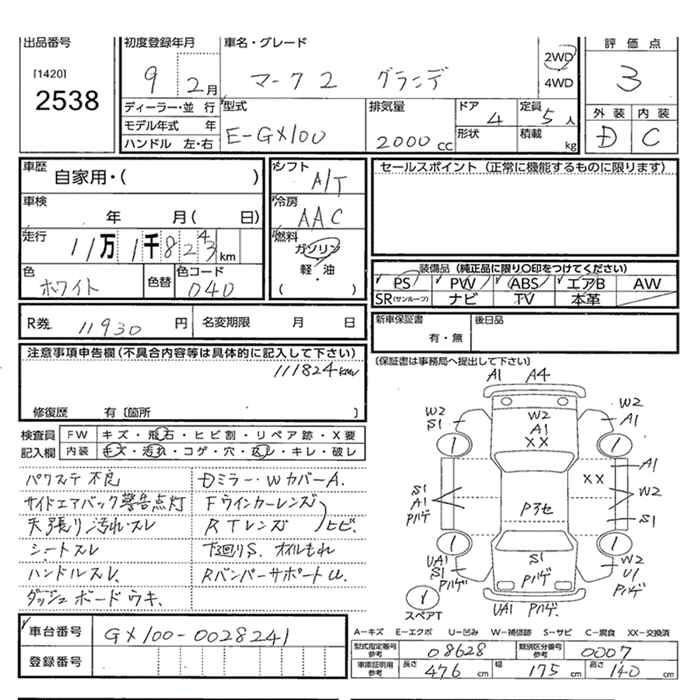 出品番号
[1420]
2538
初度登録年月
9 2月
車名・グレード
マーク2 グランデ
2WD
4WD
評価点
3
外装 内装
D C
ディーラー・並行
モデル年式 年
ハンドル 左・右
型式
E-GX100
排気量
2000cc
ドア
4
形状
定員
5人
積載
kg
車歴
自家用・( )
車検
年 月( 日)
走行
11万1千824km
色
ホワイト
色替
色コード
040
シフト
A/T
冷房
AAC
燃料
ガソリン
軽・油
( )
セールスポイント (正常に機能するものに限ります)
装備品 (純正品に限り〇印をつけてください)
PS PW ABS エアB AW
SR(サンルーフ) ナビ TV 本革
R券 11930円 名変期限 月 日
新車保証書
有・無
後日品
注意事項申告欄(不具合内容等は具体的に記入して下さい)
111824km
修復歴 有〔箇所 〕
(保証書は事務局へ提出して下さい)
検査員
記入欄
FW キズ・飛石・ヒビ割・リペア跡・X要
内装 キズ・汚れ・コゲ・穴・キレ・破レ
パワステ不良
サイドエアバック警告点灯
天張り汚れ・スレ
シートスレ
ハンドルスレ
ダッシュボードウキ.
Dミラー・WカバーA.
Fウインカーレンズ
RTレンズ
ヒビ.
下回りS. オイルもれ
RバンパーサポートU.
A1 A4
W2
S1
W2
A1
XX
W2
A1
1
1
S1
A1
Pハゲ
P3セ
XX
A1
W2
S1
1
1
UA1
S1
Pハゲ
S1
Pハゲ
W2
U1
Pハゲ
1
スペアT
UA1 Pハゲ.
車台番号 GX100-0028241
登録番号
A-キズ E-エクボ U-凹み W-補修跡 S-サビ C-腐食 XX-交換済
型式指定番号
参考
08628
類別区分番号
参考
0007
車庫証明用
参考
長さ 476cm 幅 175cm 高さ 140cm